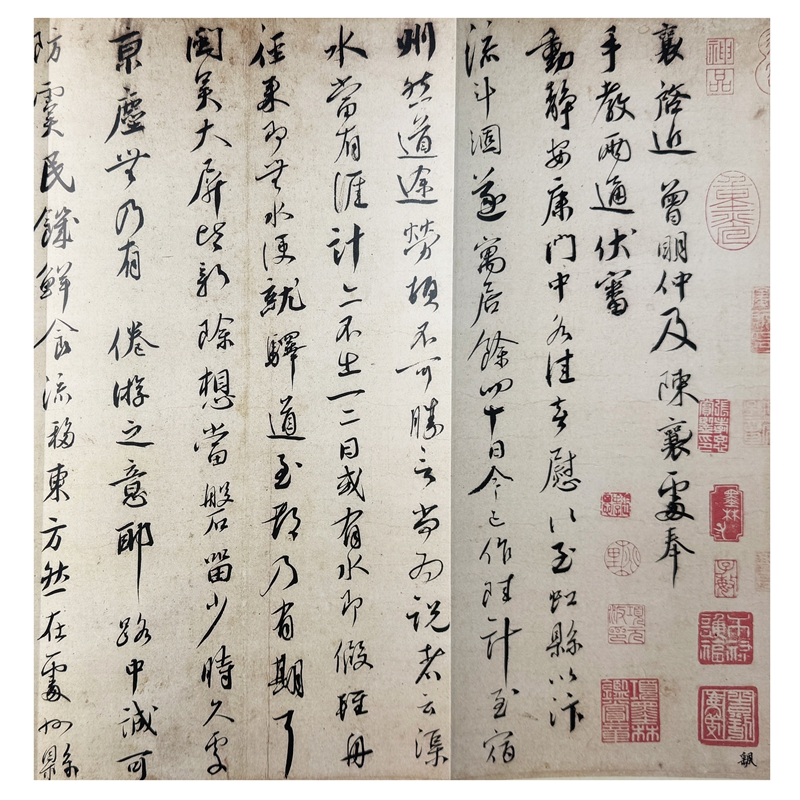 襄啓近曾明仲及陳襄處奉
手教兩通伏審
動靜安康門中各佳喜慰以至虹縣以汴
流斗涸遂寓居餘四十日今已作陸計至宿
州然道途勞頓不可勝言尚為說者云渠
水當有涯計亦不出一二日或有水即假輕舟
徑來即無水便就驛道至都乃有期耳
閩吳大屏皆新除想當磐留少時久處
京塵無乃有 倦游之意耶路中誠可
防虞民饑鮮食流移東方然在處州縣
神品
項元汴印
項墨林鑑賞章